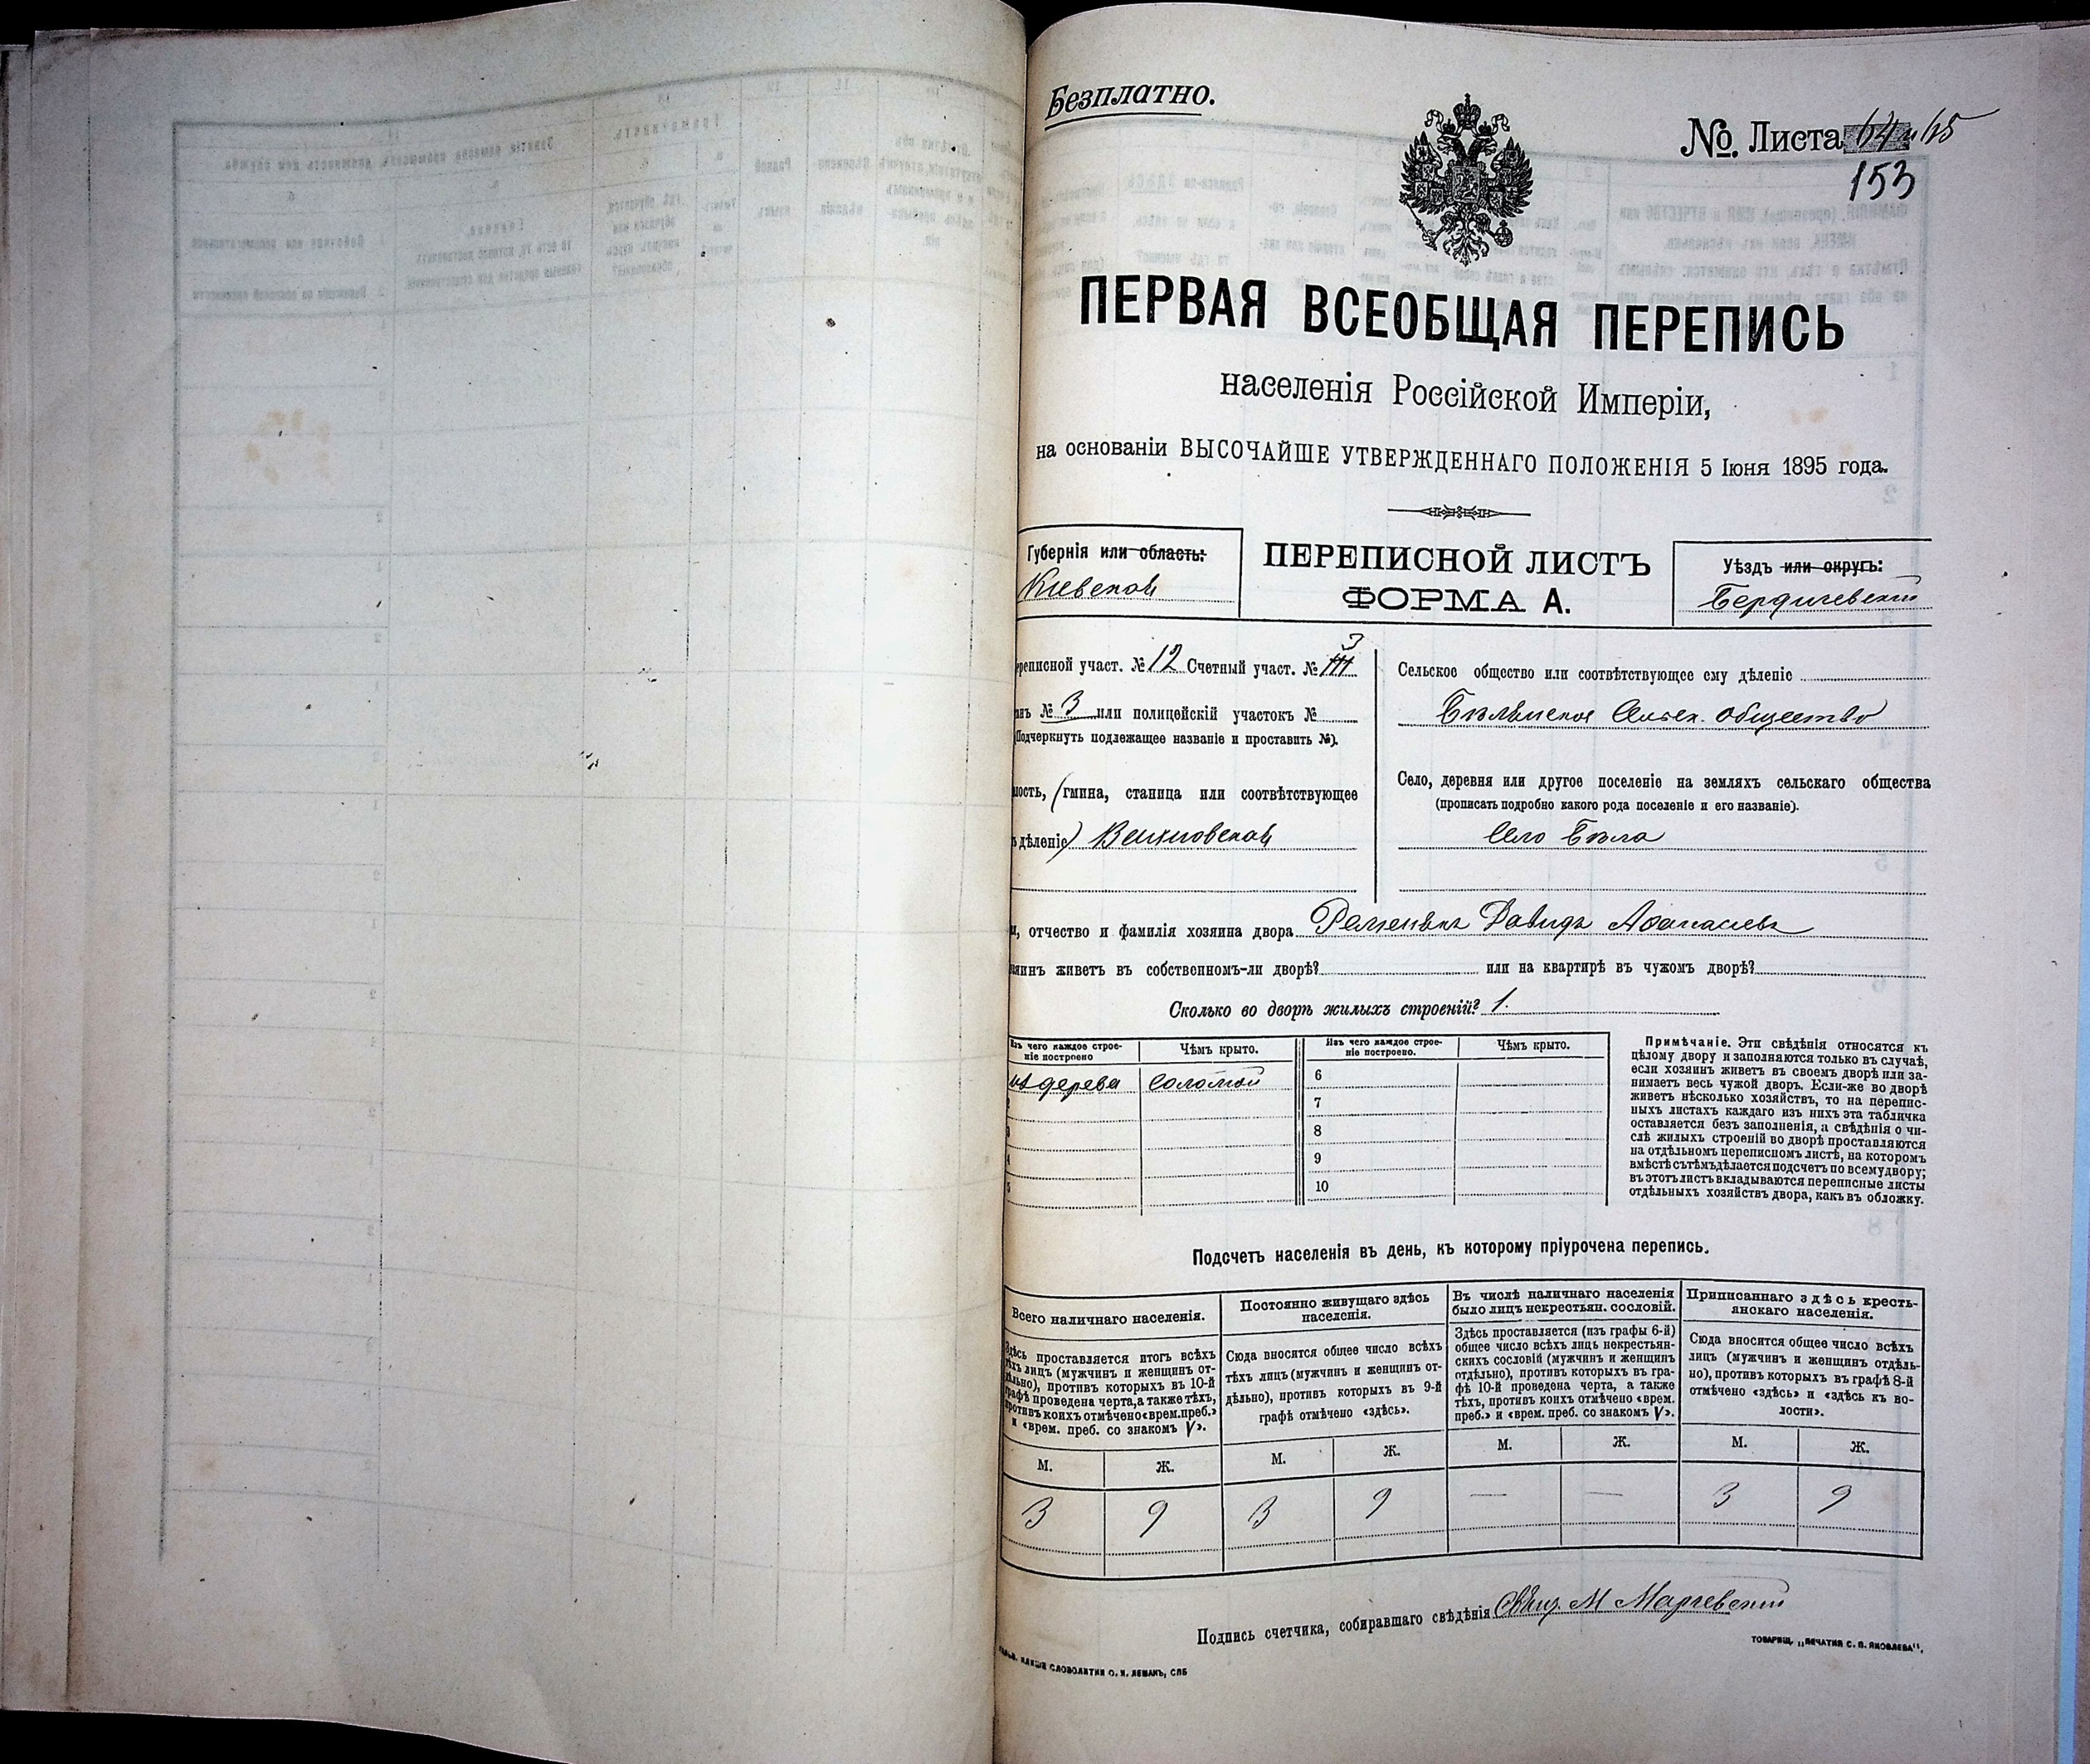 Безплатно.
№ Листа 64 и 65
153
ПЕРВАЯ ВСЕОБЩАЯ ПЕРЕПИСЬ
населенія Россійской Имперіи,
на основаніи ВЫСОЧАЙШЕ УТВЕРЖДЕННАГО ПОЛОЖЕНІЯ 5 Іюня 1895 года.
Губернія или область:
Кіевская
ПЕРЕПИСНОЙ ЛИСТЪ
ФОРМА А.
Уѣздъ или округъ:
Бердичевскій
ереписной участ. № 12 Счетный участ. № III 3
анъ № 3 или полицейскій участокъ №
(Подчеркнуть подлежащее названіе и проставить №).
лость, (гмина, станица или соотвѣтствующее
ъ дѣленіе) Вахновская
Сельское общество или соотвѣтствующее ему дѣленіе
Бѣлянское Сельск. общество
Село, деревня или другое поселеніе на земляхъ сельскаго общества
(прописать подробно какого рода поселеніе и его названіе).
Село Бѣла
я, отчество и фамилія хозяина двора Давидъ Афанасьевъ
зяинъ живетъ въ собственномъ-ли дворѣ? или на квартирѣ въ чужомъ дворѣ?
Сколько во дворѣ жилыхъ строеній? 1.
Изъ чего каждое строе-
ніе построено
Чѣмъ крыто.
Изъ чего каждое строе-
ніе построено.
Чѣмъ крыто.
изъ дерева соломой
6
7
8
9
10
Примѣчаніе. Эти свѣдѣнія относятся къ
цѣлому двору и заполняются только въ случаѣ,
если хозяинъ живетъ въ своемъ дворѣ или за-
нимаетъ весь чужой дворъ. Если-же во дворѣ
живетъ нѣсколько хозяйствъ, то на перепис-
ныхъ листахъ каждаго изъ нихъ эта табличка
оставляется безъ заполненія, а свѣдѣнія о чи-
слѣ жилыхъ строеній во дворѣ проставляются
на отдѣльномъ переписномъ листѣ, на которомъ
вмѣстѣ съ тѣмъ дѣлается подсчетъ по всему двору;
въ этотъ листъ вкладываются переписные листы
отдѣльныхъ хозяйствъ двора, какъ въ обложку.
Подсчетъ населенія въ день, къ которому пріурочена перепись.
Всего наличнаго населенія.
Здѣсь проставляется итогъ всѣхъ
тѣхъ лицъ (мужчинъ и женщинъ от-
дѣльно), противъ которыхъ въ 10-й
графѣ проведена черта, а также тѣхъ,
противъ коихъ отмѣчено «врем. преб.»
и «врем. преб. со знакомъ V».
Постоянно живущаго здѣсь
населенія.
Сюда вносится общее число всѣхъ
тѣхъ лицъ (мужчинъ и женщинъ от-
дѣльно), противъ которыхъ въ 9-й
графѣ отмѣчено «здѣсь».
Въ числѣ наличнаго населенія
было лицъ некрестьян. сословій.
Здѣсь проставляется (изъ графы 6-й)
общее число всѣхъ лицъ некрестьян-
скихъ сословій (мужчинъ и женщинъ
отдѣльно), противъ которыхъ въ гра-
фѣ 10-й проведена черта, а также
тѣхъ, противъ коихъ отмѣчено «врем.
преб.» и «врем. преб. со знакомъ V».
Приписаннаго здѣсь кресть-
янскаго населенія.
Сюда вносится общее число всѣхъ
лицъ (мужчинъ и женщинъ отдѣль-
но), противъ которыхъ въ графѣ 8-й
отмѣчено «здѣсь» и «здѣсь къ во-
лости».
М. Ж. М. Ж. М. Ж. М. Ж.
3 9 3 9 — — 3 9
Подпись счетчика, собиравшаго свѣдѣнія М Маргевскій
СЛОВОЛИТНИ О. И. ЛЕМАНЪ, СПБ
ТОВАРИЩ. „ПЕЧАТНЯ С. П. ЯКОВЛЕВА".